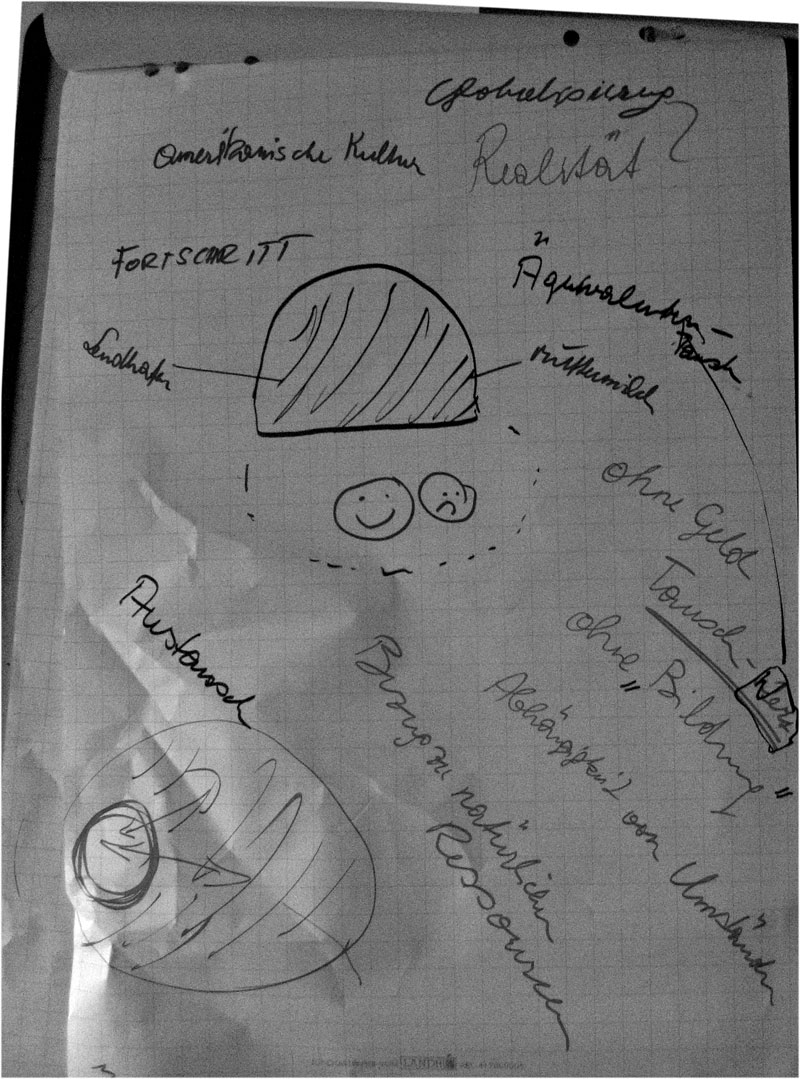 Globalisierung
amerikanische Kultur
Realität
FORTSCHRITT
Äquivalenten-
Tausch
Muttermilch
ohne Geld
Tausch-
Wert
ohne "Bildung"
Austausch
Bezug zu natürlichen
Ressourcen
Abhängigkeit von Umständen